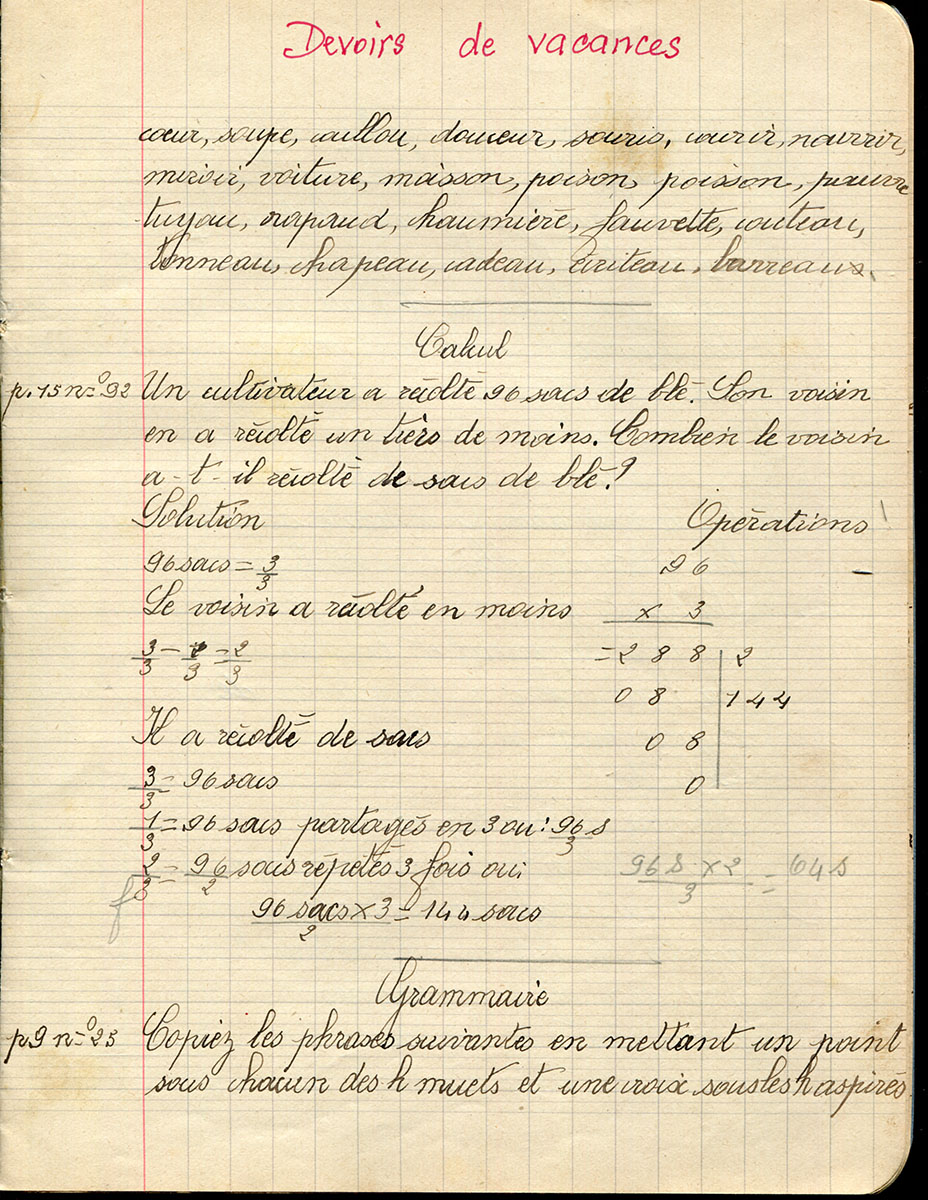 Devoirs de vacances
cœur, soupe, caillou, douceur, souris, courir, nourrir,
miroir, voiture, maison, poison, poisson, pauvre
tuyau, crapaud, chaumière, fauvette, couteau,
tonneau, chapeau, cadeau, écriteau, barreaux.
Calcul
p. 15 nº 92 Un cultivateur a récolté 96 sacs de blé. Son voisin
en a récolté un tiers de moins. Combien le voisin
a-t-il récolté de sacs de blé?
Solution Opérations
96 sacs = 3/3 96
Le voisin a récolté en moins × 3
3/3 - 1/3 = 2/3 = 288 | 2
08 | 144
Il a récolté de sacs 08
3/3 = 96 sacs 0
1/3 = 96 sacs partagés en 3 ou: 96 s/3
2/3 = 96/2 sacs répétés 3 fois ou: 96 s × 2/3 = 64 s
f
96 sacs × 3/2 = 144 sacs
Grammaire
p 9 nº 25 Copiez les phrases suivantes en mettant un point
sous chacun des h muets et une croix sous les h aspirés